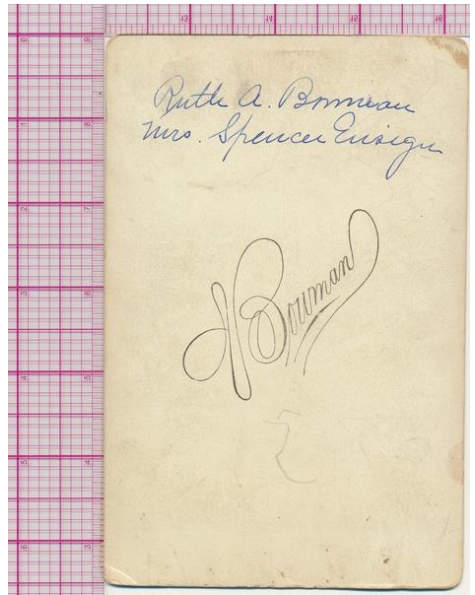 13 14 15 16
Ruth A. Bonneau
Mrs. Spencer Ensign
Bowman